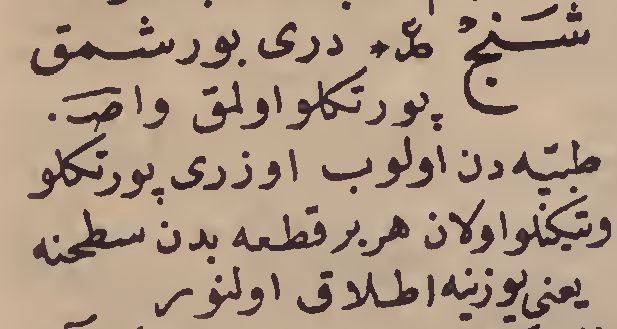 شَنَجْ طّ * درى بورشمق
پورتكلو اولمق واصـ.
طبيّه دن اولوب اوزرى پورتكلو
وتيكنلو اولان هربر قطعه بدن سطحنه
يعنى يوزينه اطلاق اولنور